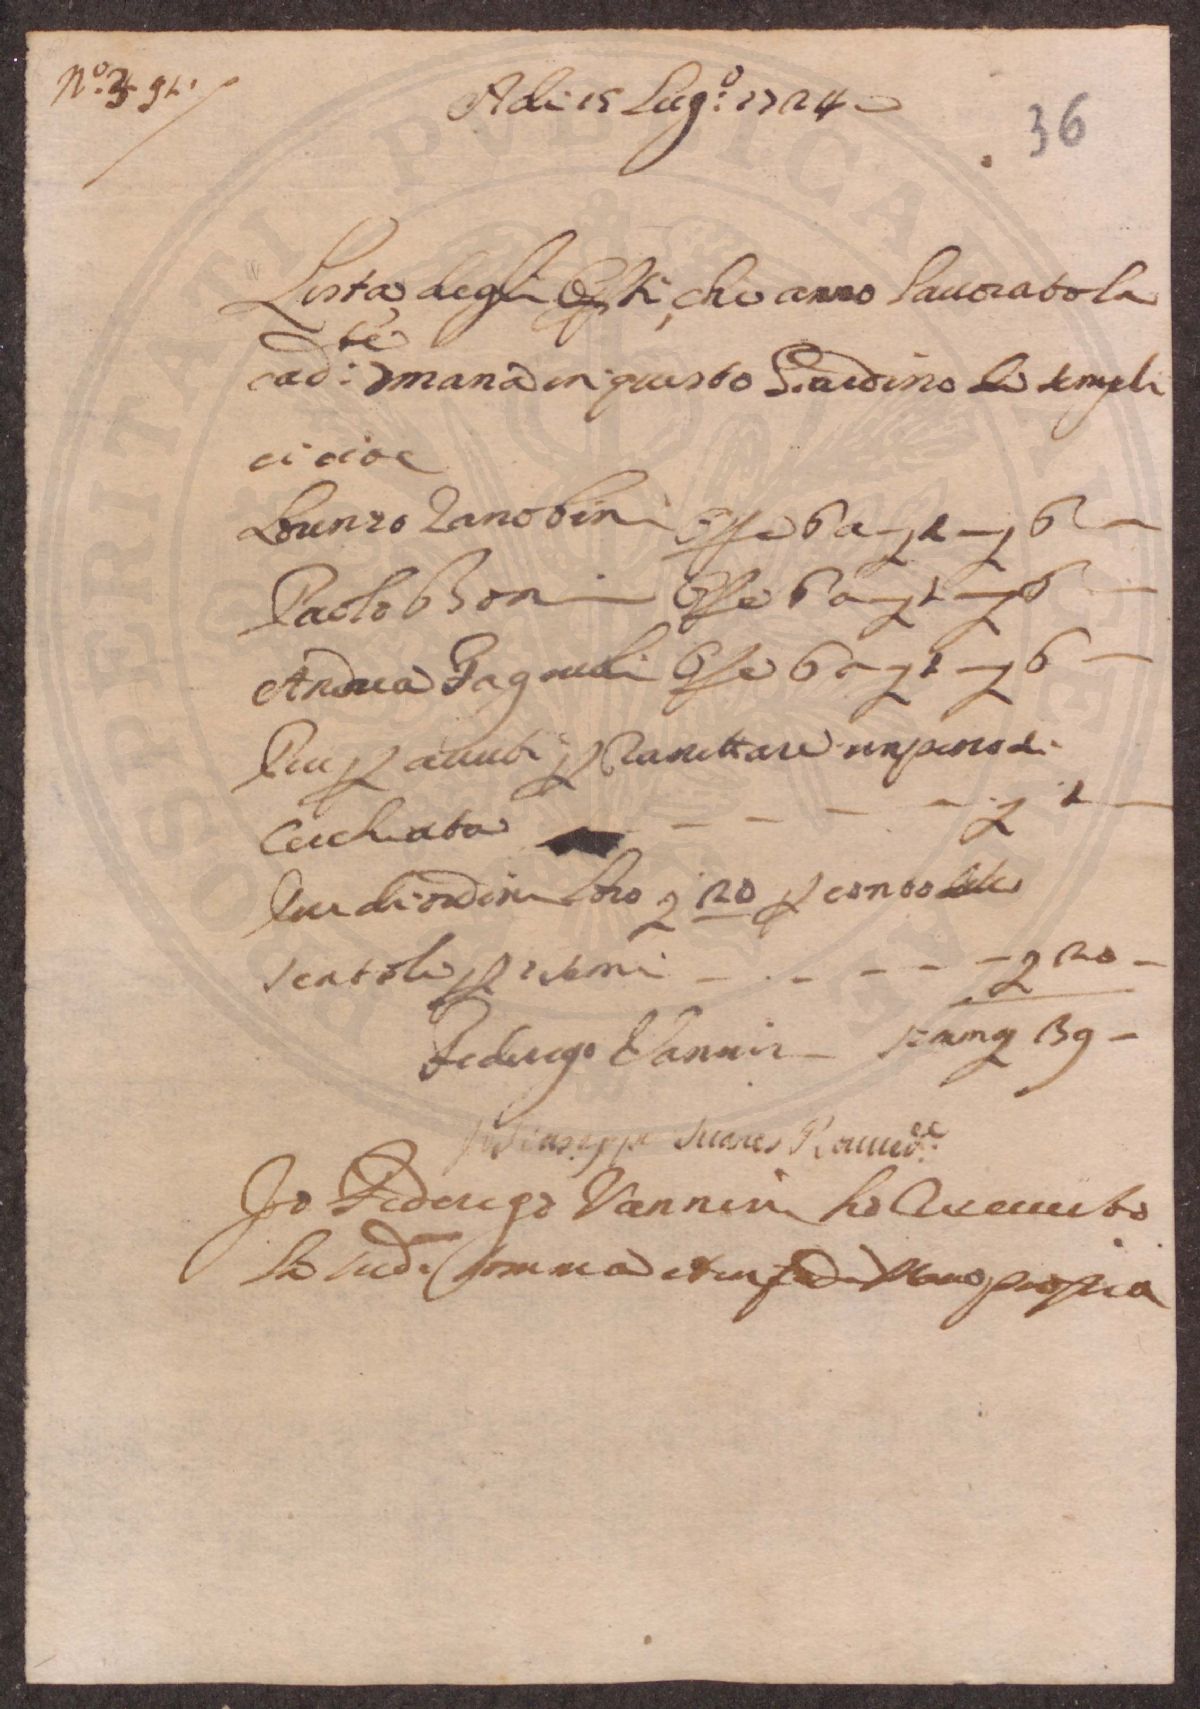 Adi 15 Lug.o 1724
36
Lista degli Opre, che anno lauorato la
cad.te semana in questo Giardino de sempli
ci cioe
Lorenzo Zanobini Opre 6 a £ 1 £ 6
Paolo Bonini Opre 6 a £ 1 £ 6
Andrea Gagnuli Opre 6 a £ 1 £ 6
Piu p auer p Rasettare un pezo di
Cerchiata £ 1
Piu di ordine loro £ 20 p conto delle
scatole p i semi £ 20
Federigo Vannini somª £ 39
Giuseppe Suares Proued.re
Io Federigo Vannini ho Riceuuto
la sud.a somma et in fede Mano propria